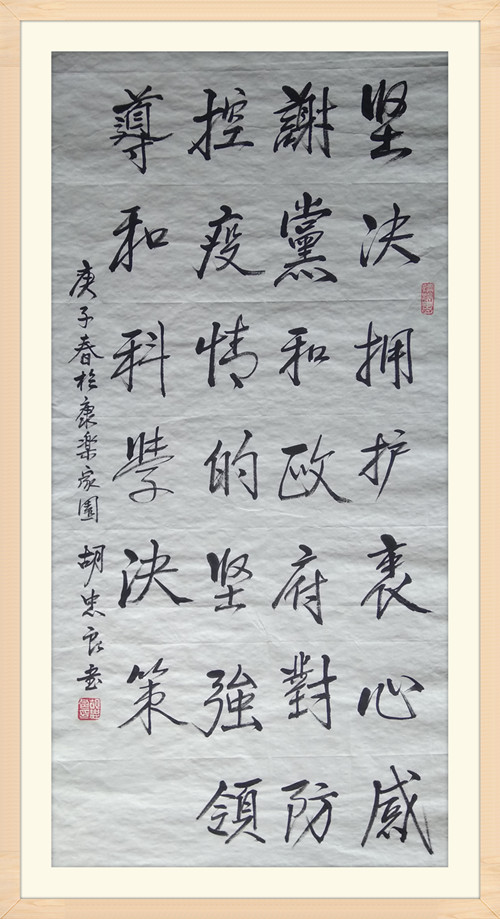 坚决拥护衷心感
謝黨和政府對防
控疫情的坚強領
導和科學決策
庚子春於康楽家園 胡忠良書